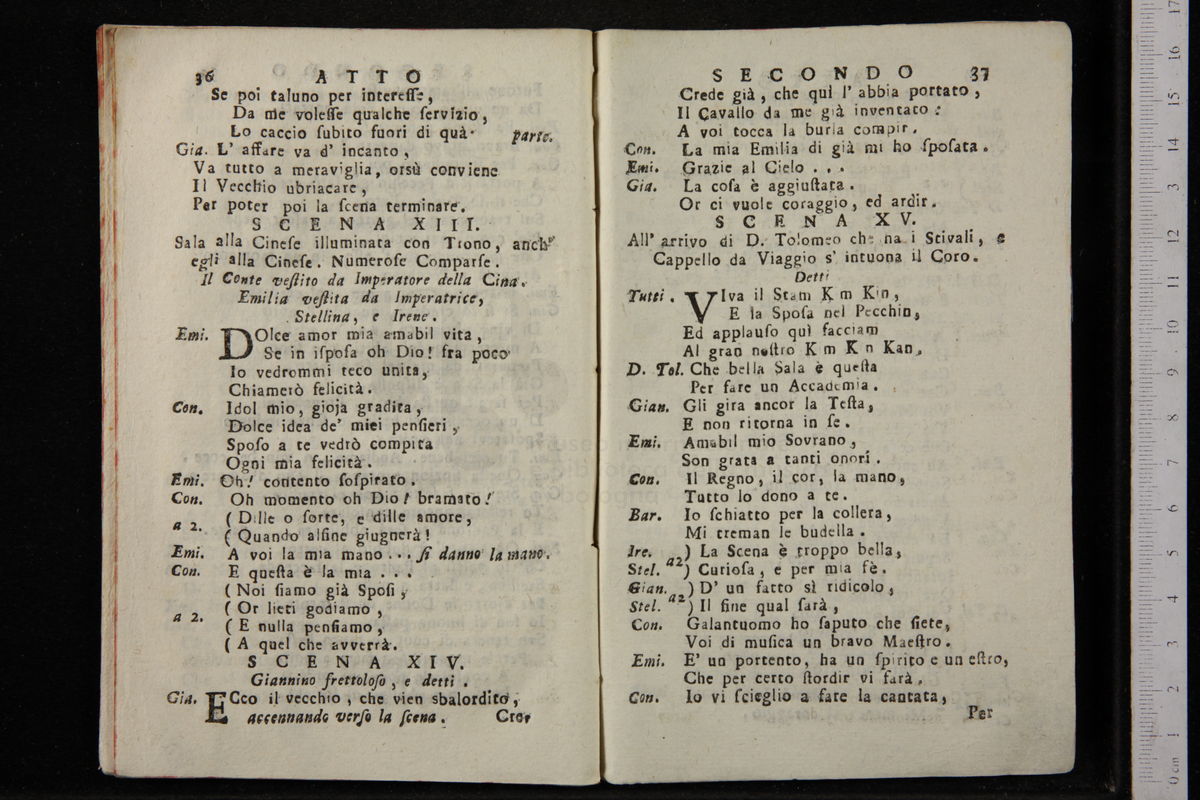 36 ATTO
Se poi taluno per intereſſe,
Da me voleſſe qualche ſervizio,
Lo caccio ſubito fuori di quà. parte.
Gia. L' affare va d' incanto,
Va tutto a meraviglia, orsù conviene
Il Vecchio ubriacare,
Per poter poi la ſcena terminare.
SCENA XIII.
Sala alla Cineſe illuminata con Trono, anch'
egli alla Cineſe. Numeroſe Comparſe.
Il Conte veſtito da Imperatore della Cina.
Emilia veſtita da Imperatrice,
Stellina, e Irene.
Emi. DOlce amor mia amabil vita,
Se in iſpoſa oh Dio! fra poco
Io vedrommi teco unita,
Chiamerò felicità.
Con. Idol mio, gioja gradita,
Dolce idea de' miei penſieri,
Spoſo a te vedrò compita
Ogni mia felicità.
Emi. Oh! contento ſoſpirato.
Con. Oh momento oh Dio! bramato!
a 2. ( Dille o ſorte, e dille amore,
( Quando alfine giugnerà!
Emi. A voi la mia mano... ſi danno la mano.
Con. E queſta è la mia...
( Noi ſiamo già Spoſi,
a 2. ( Or lieti godiamo,
( E nulla penſiamo,
( A quel che avverrà.
SCENA XIV.
Giannino frettoloſo, e detti.
Gia. ECco il vecchio, che vien sbalordito,
accennando verſo la ſcena. Cre-
SECONDO 37
Crede già, che quì l' abbia portato,
Il Cavallo da me già inventato:
A voi tocca la burla compir.
Con. La mia Emilia di già mi ho ſpoſata.
Emi. Grazie al Cielo...
Gia. La coſa è aggiuſtata.
Or ci vuole coraggio, ed ardir.
SCENA XV.
All' arrivo di D. Tolomeo che ha i Stivali, e
Cappello da Viaggio s' intuona il Coro.
Detti
Tutti. VIva il Stam Kim Kin,
E la Spoſa nel Pecchin,
Ed applauſo quì facciam
Al gran noſtro Kim Kin Kan.
D. Tol. Che bella Sala è queſta
Per fare un Accademia.
Gian. Gli gira ancor la Teſta,
E non ritorna in ſe.
Emi. Amabil mio Sovrano,
Son grata a tanti onori.
Con. Il Regno, il cor, la mano,
Tutto lo dono a te.
Bar. Io ſchiatto per la collera,
Mi treman le budella.
Ire. ) La Scena è troppo bella,
Stel. a2 ) Curioſa, e per mia fè.
Gian. ) D' un fatto sì ridicolo,
Stel. a2 ) Il fine qual ſarà,
Con. Galantuomo ho ſaputo che ſiete,
Voi di muſica un bravo Maeſtro.
Emi. E' un portento, ha un ſpirito e un eſtro,
Che per certo ſtordir vi farà.
Con. Io vi ſcieglio a fare la cantata,
Per